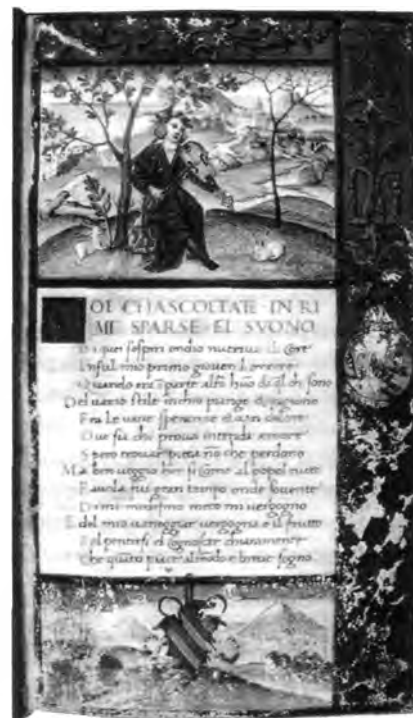 OI CHASCOLTATE IN RI
ME SPARSE EL SVONO
Di quei sospiri ondio nutriva il Core
Insul mio primo giovenil errore
Quando era i parte altro huo da quel chi sono
Del vario stile inchio piango et ragiono
Fra Le vane speranze et van dolore
Ove sia chi prova intenda amore
Spero trovar pieta no che perdono
Ma ben veggio hor si Come al popol tutto
Favola fui gran tempo onde sovente
Di mi medesmo meco mi vergogno
E del mio vaneggiar vergogna e il frutto
E el pentirsi el cognoscer chiaramente
Che quato piace al mondo e breve sogno